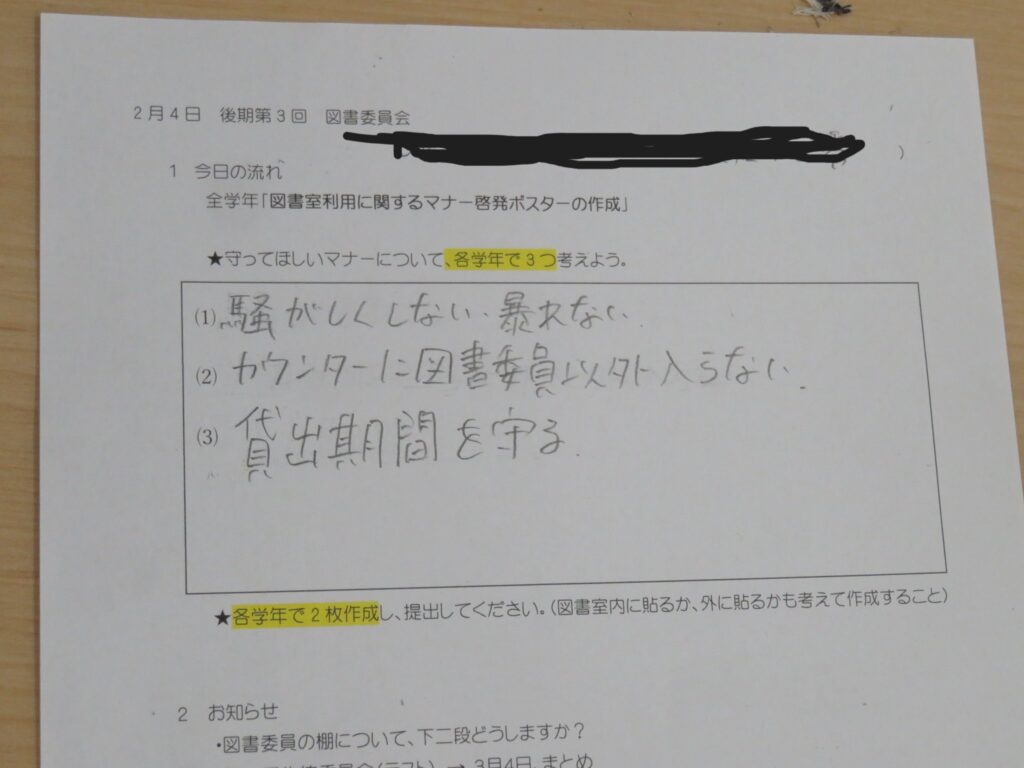 2月4日 後期第3回 図書委員会
)
1 今日の流れ
全学年「図書室利用に関するマナー啓発ポスターの作成」
★守ってほしいマナーについて、各学年で3つ考えよう。
(1) 騒がしくしない、暴れない
(2) カウンターに図書委員以外入らない.
(3) 貸出期間を守る.
★各学年で2枚作成し、提出してください。(図書室内に貼るか、外に貼るかも考えて作成すること)
2 お知らせ
・図書委員の棚について、下二段どうしますか?
委員会(テスト) → 3月4日、まとめ